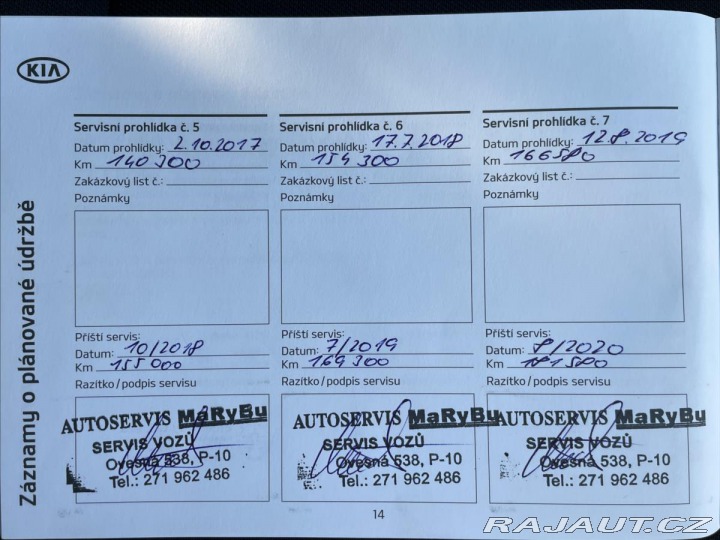 KIA
Záznamy o plánované údržbě
Servisní prohlídka č. 5
Datum prohlídky: 2.10.2017
Km 140 300
Zakázkový list č.:
Poznámky
Příští servis:
Datum: 10/2018
Km 155 000
Razítko/podpis servisu
AUTOSERVIS MaRyBu
SERVIS VOZŮ
Ovesná 538, P-10
Tel.: 271 962 486
Servisní prohlídka č. 6
Datum prohlídky: 17.7.2018
Km 154 300
Zakázkový list č.:
Poznámky
Příští servis:
Datum: 7/2019
Km 169 300
Razítko/podpis servisu
AUTOSERVIS MaRyBu
SERVIS VOZŮ
Ovesná 538, P-10
Tel.: 271 962 486
Servisní prohlídka č. 7
Datum prohlídky: 12.8.2019
Km 166580
Zakázkový list č.:
Poznámky
Příští servis:
Datum: 8/2020
Km 181580
Razítko/podpis servisu
AUTOSERVIS MaRyBu
SERVIS VOZŮ
Ovesná 538, P-10
Tel.: 271 962 486
14
RAJAUT.CZ